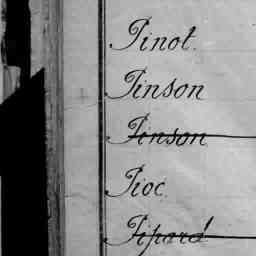 Pinot.
Pinson
Pinson
Pioc
Pipard